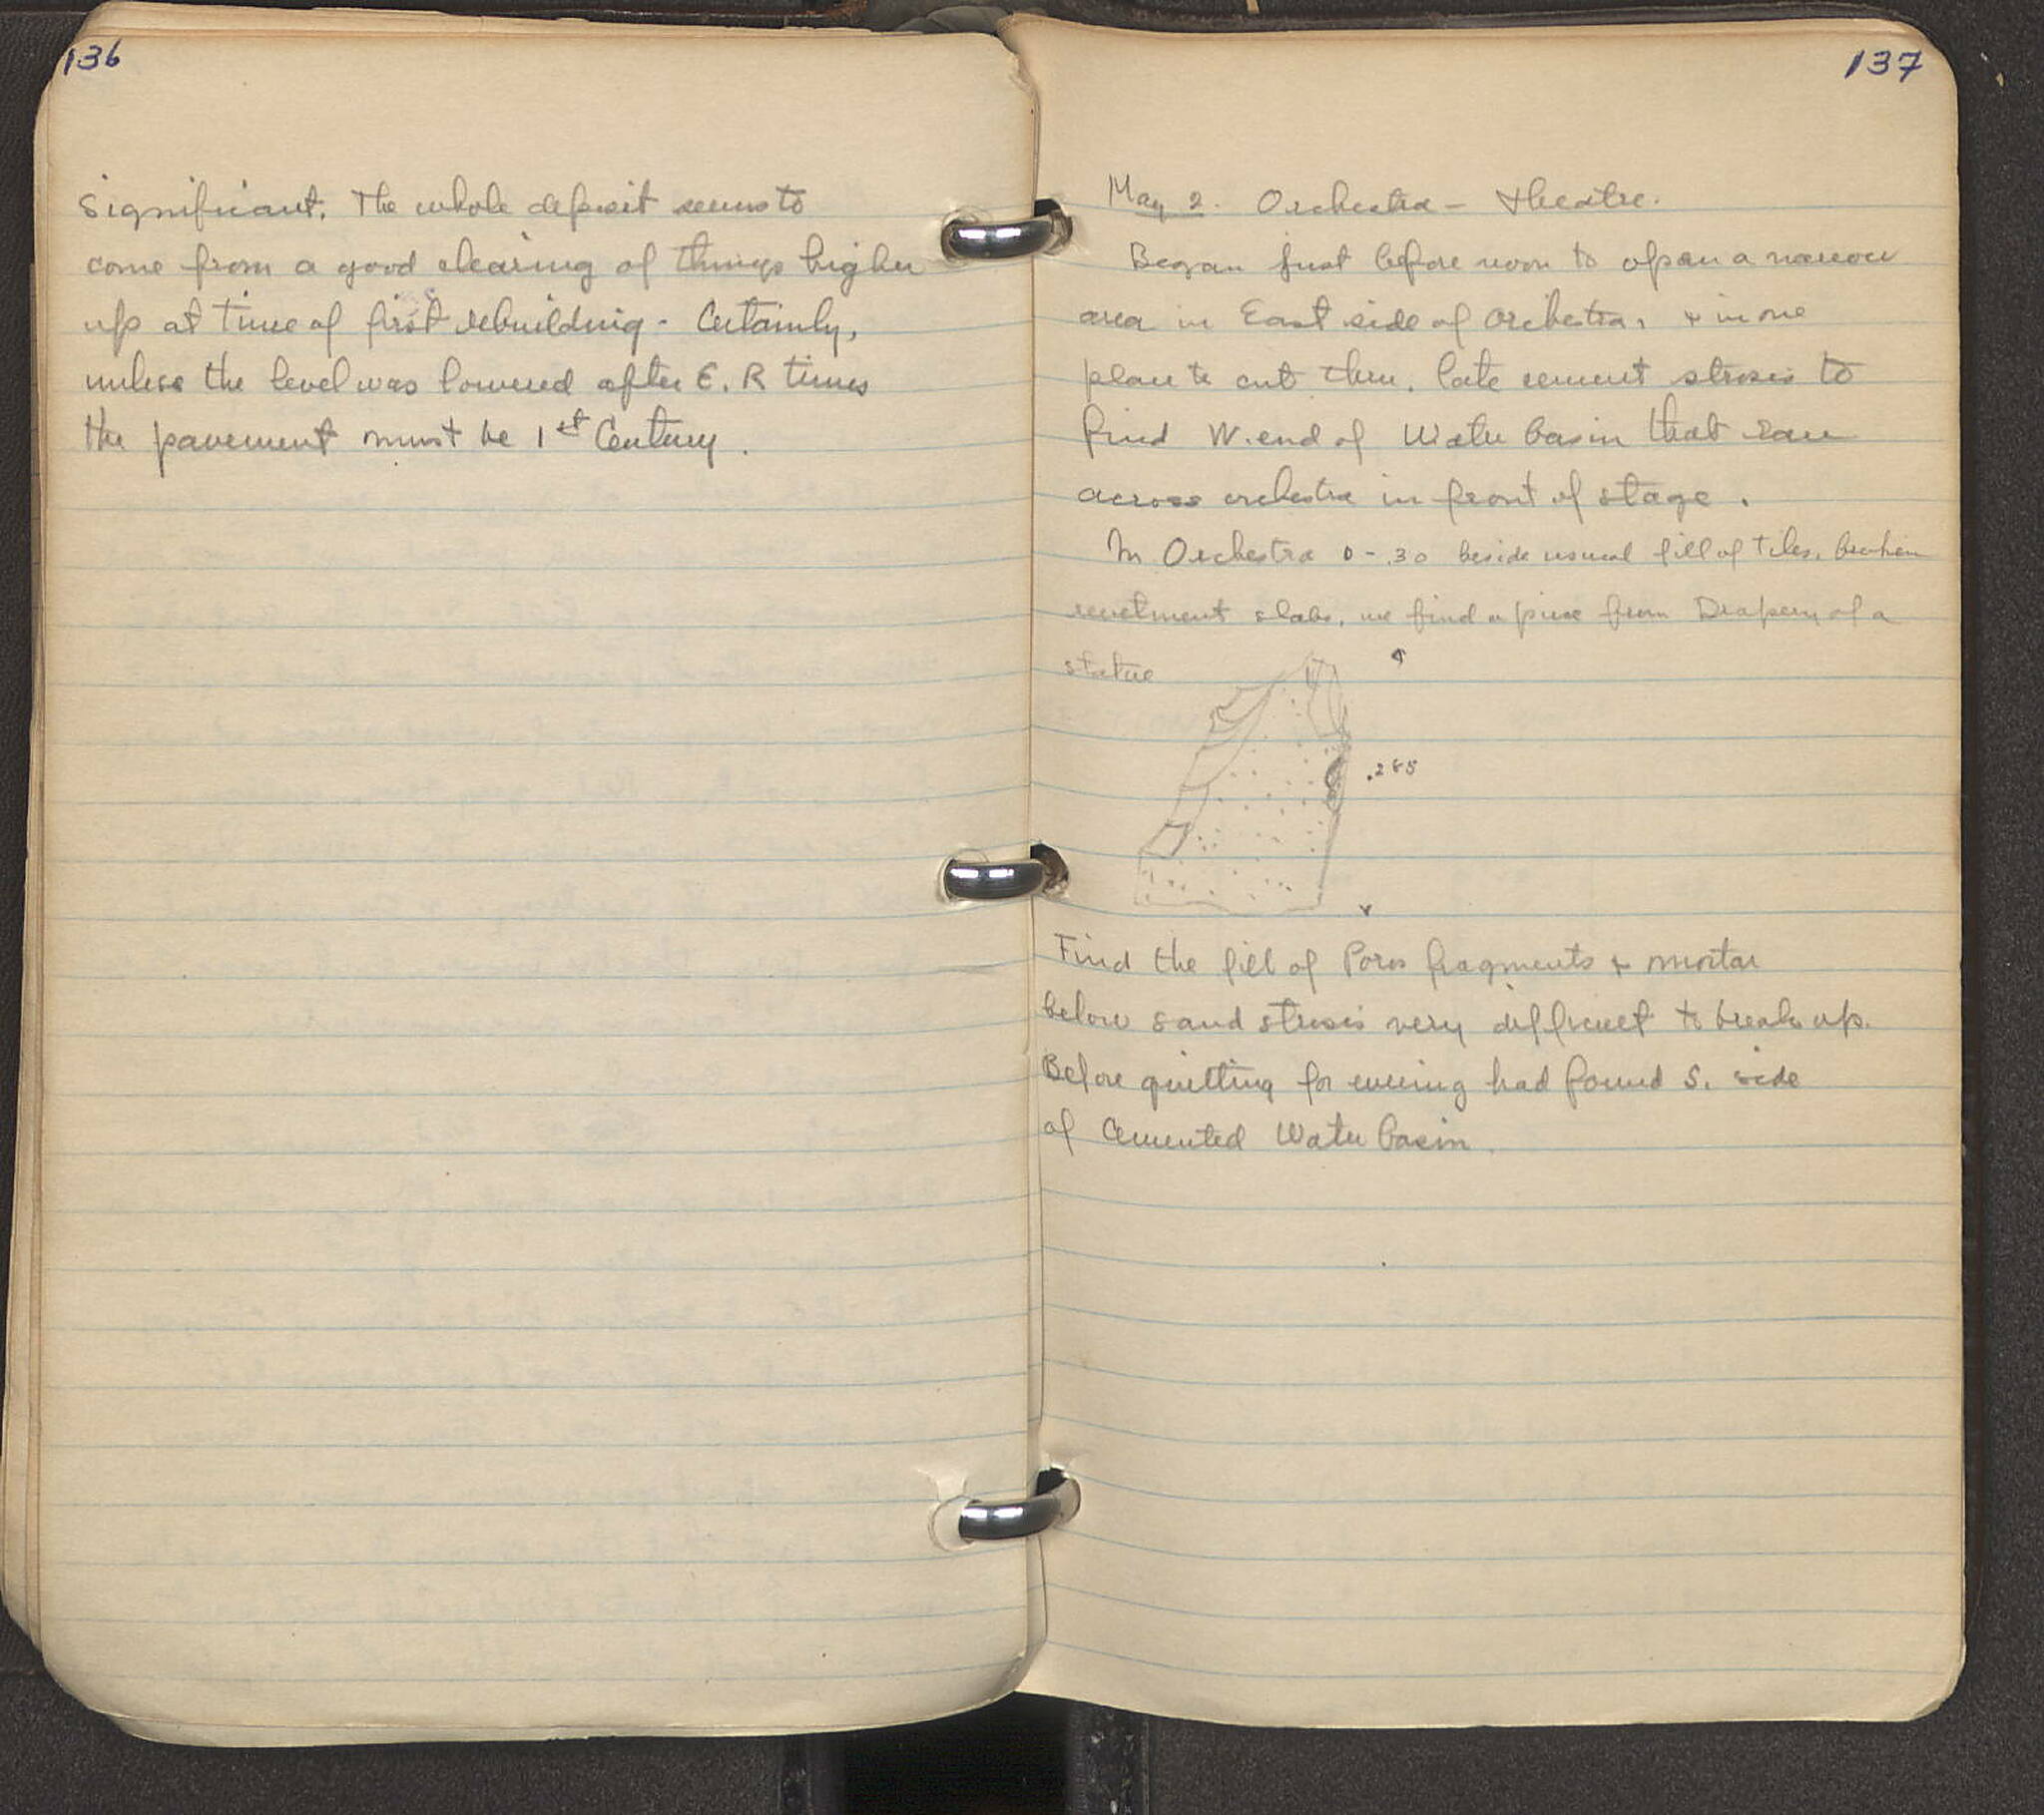 136
Significant. The whole deposit seems to
come from a good clearing of things higher
up at time of first rebuilding - Certainly,
unless the level was lowered after E. R times
the pavement must be 1st Century.
137
May 2. Orchestra - theatre.
Began just before noon to open a narrow
area in East side of Orchestra, & in one
place to cut thru. late cement strosis to
find W. end of Water basin that ran
across orchestra in front of stage.
In Orchestra 0 - .30 beside usual fill of tiles, broken
revetment slabs, we find a piece from Drapery of a
statue
.285
Find the fill of Poros fragments & mortar
below sand strosis very difficult to break up.
Before quitting for evening had found S. side
of Cemented Water basin.